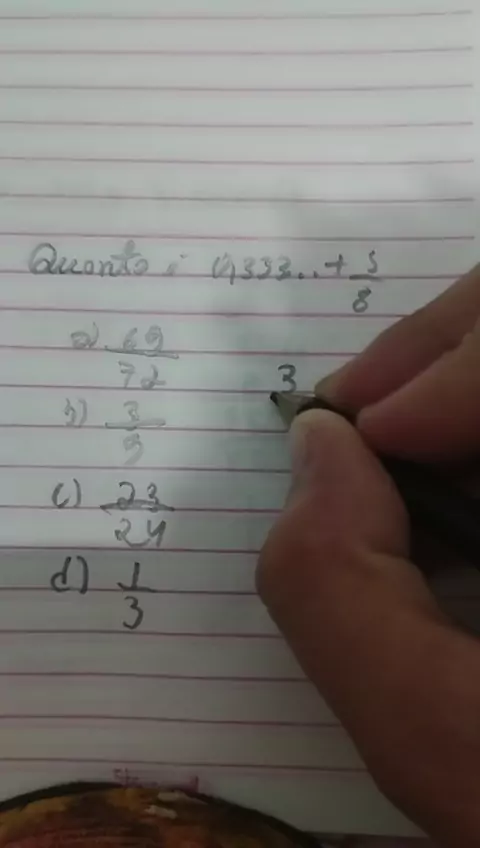 Quanto é 0,333... + 5/8
a) 69/72
b) 3/9
c) 23/24
d) 1/3
3